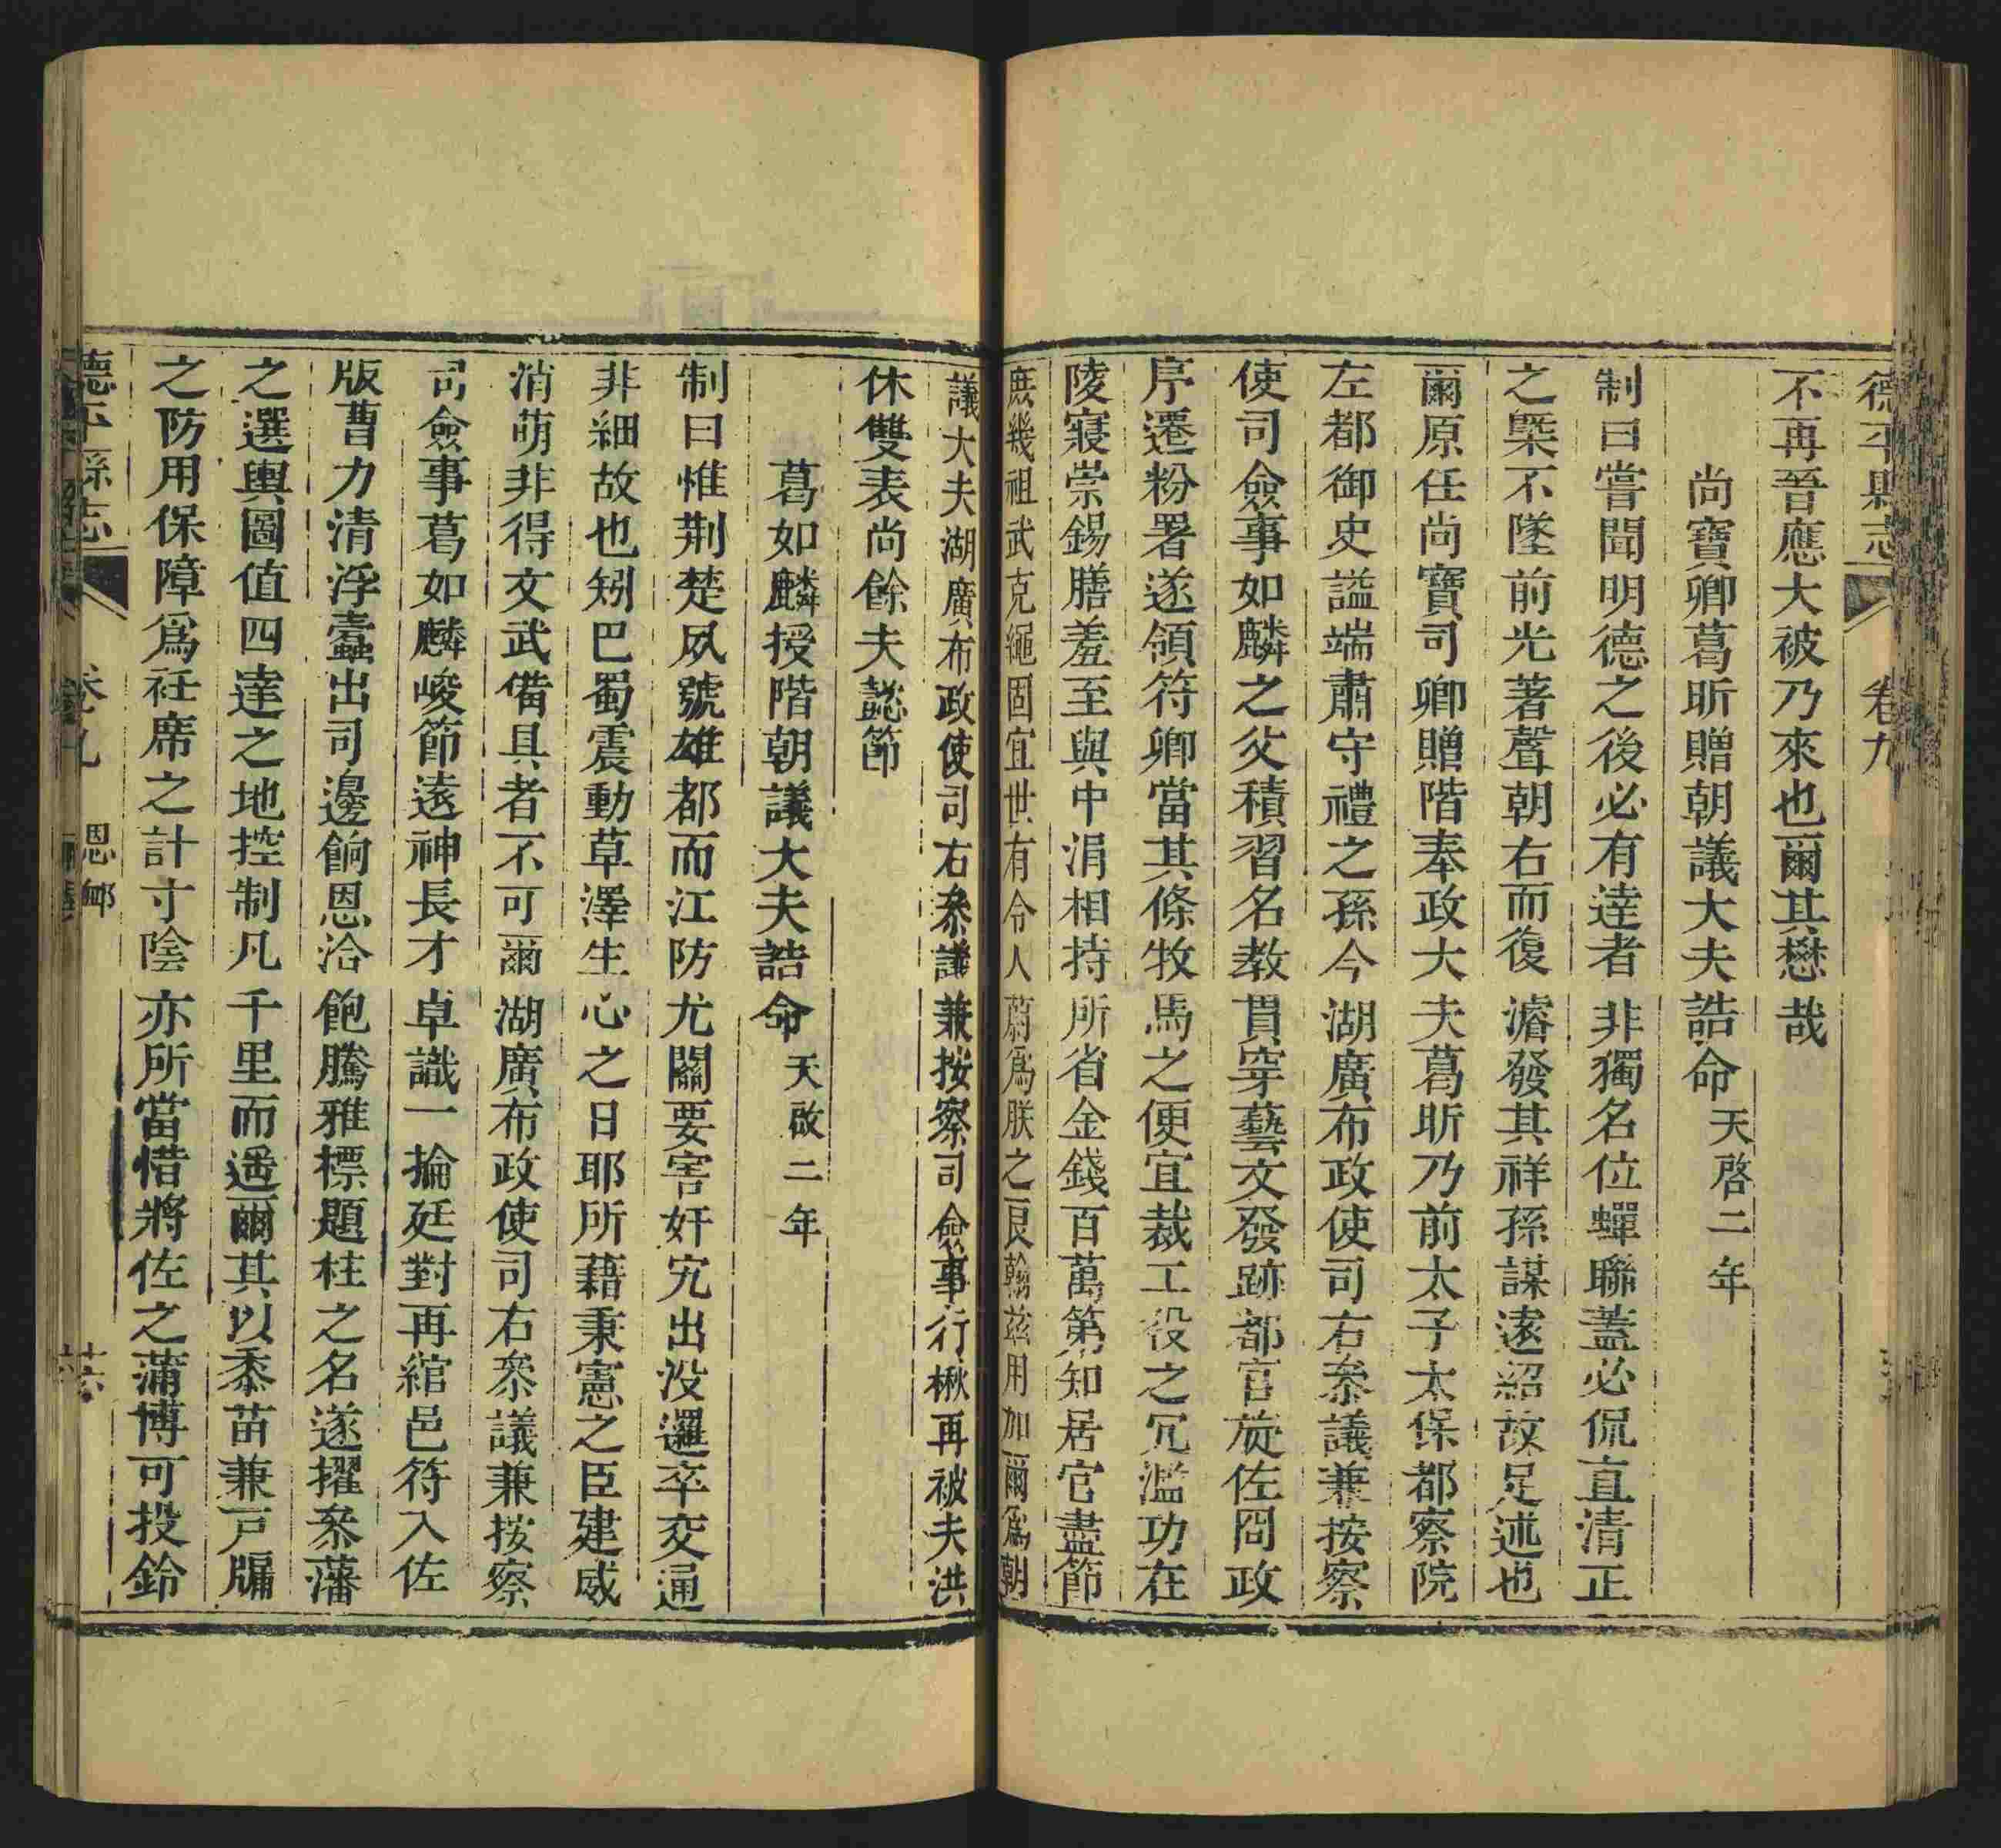 德平縣志 卷九
不再晉應大被乃來也爾其懋哉
尚寶卿葛昕贈朝議大夫誥命天啓二年
制曰嘗聞明德之後必有達者非獨名位蟬聯蓋必侃直清正
之槩不墜前光著聲朝右而復濬發其祥孫謀遠紹故足述也
爾原任尚寶司卿贈階奉政大夫葛昕乃前太子太保都察院
左都御史謚端肅守禮之孫今湖廣布政使司右叅議兼按察
使司僉事如麟之父積習名教貫穿藝文發跡都官旋佐罔政
序遷粉署遂領符卿當其條牧馬之便宜裁工役之冗濫功在
陵寢崇錫膳羞至與中涓相持所省金錢百萬第知居官盡節
庶幾祖武克繩固宜世有令人蔚爲朕之良翰茲用加爾爲朝
議大夫湖廣布政使司右叅議兼按察司僉事行楸再被夫洪
休雙表尚餘夫懿節
葛如麟授階朝議大夫誥命天啟二年
制曰惟荆楚夙號雄都而江防尤關要害奸宄出没邏卒交通
非細故也矧巴蜀震動草澤生心之日耶所藉秉憲之臣建威
消萌非得文武備具者不可爾湖廣布政使司右叅議兼按察
司僉事葛如麟峻節遠神長才卓識一掄廷對再綰邑符入佐
版曹力清浮蠹出司邊餉恩洽飽騰雅標題柱之名遂擢叅藩
之選輿圖值四達之地控制凡千里而遥爾其以黍苗兼戸牖
之防用保障爲衽席之計寸陰亦所當惜將佐之蒲博可投鈴
德平縣志 卷九 恩卹